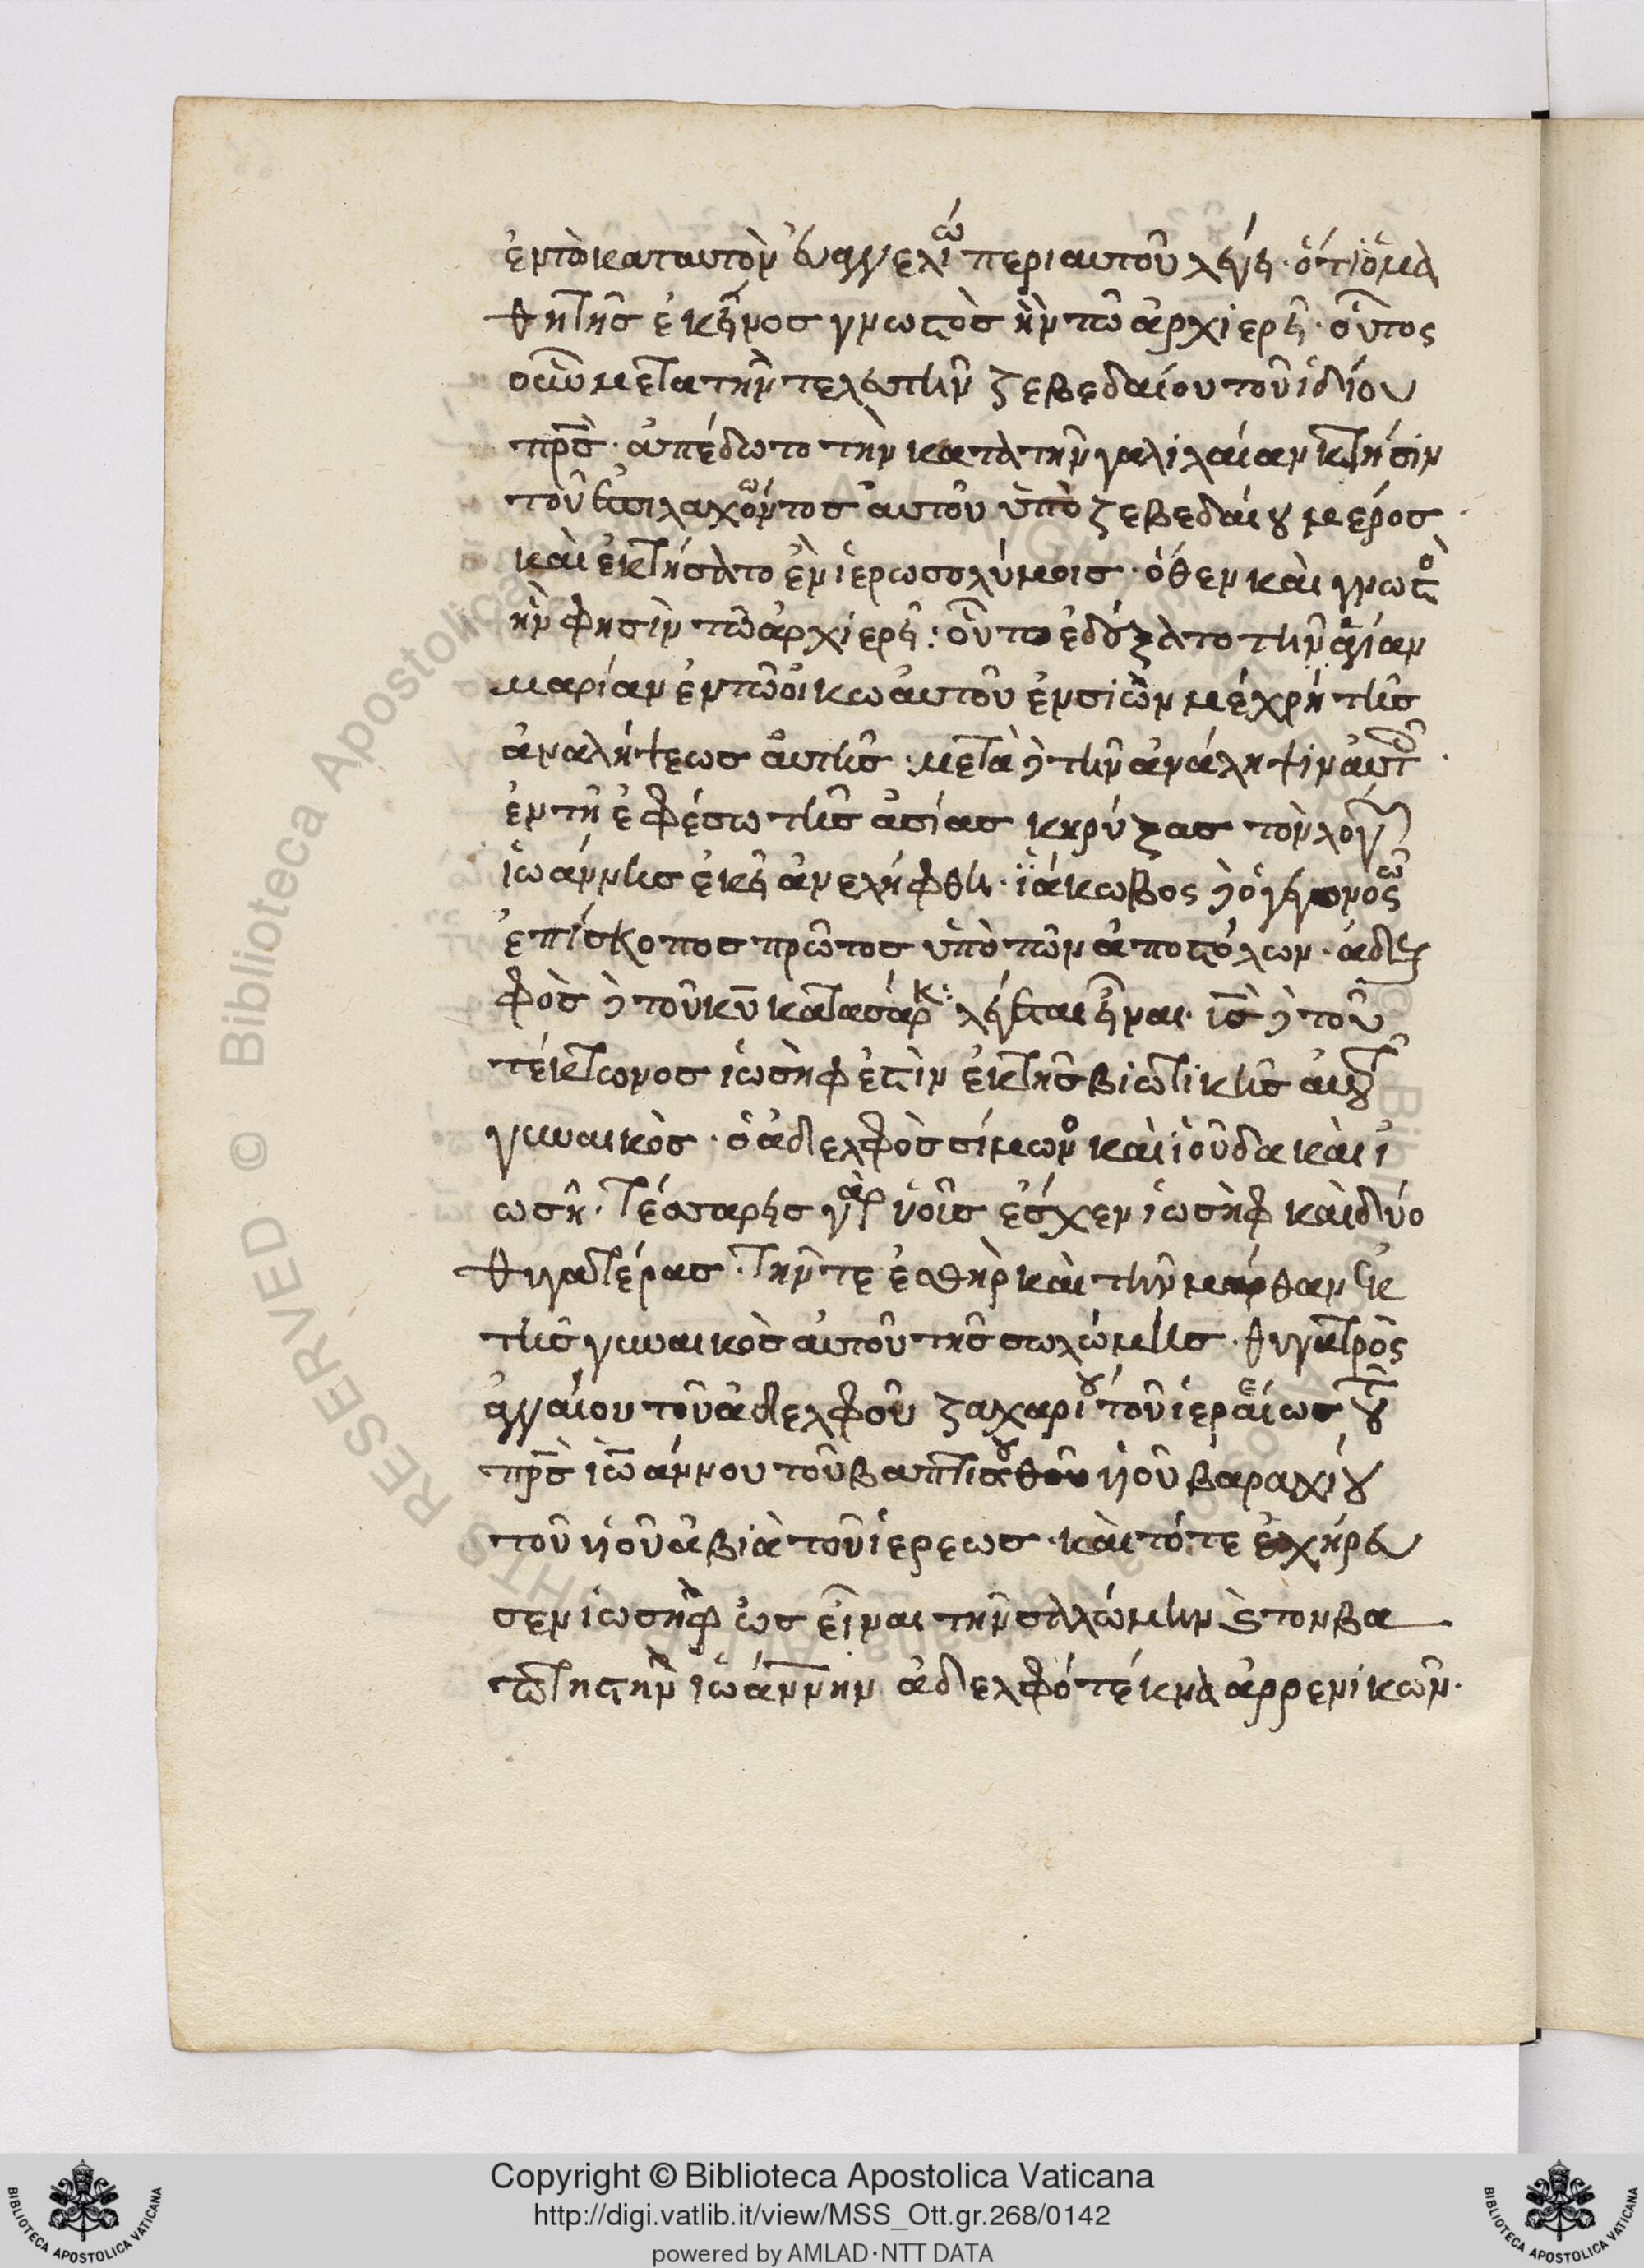 ἐν τὸ κατ αυτὸν ἐυαγγελίω περι αυτοῦ λέγει· ὅτι ὁ μα
θητῆς ἐκεῖνος γνωστὸς ἦν τῶ ἀρχιερεῖ· οὗτος
οὖν μετα τὴν τελευτὴν ζεβεδαίου τοῦ ἰδίου
πρ̅ς· ἀπέδωτο τὴν κατὰ τὴν γαλιλαίαν κτήσιν
τοῦ ἐπιλαχώντος αυτοῦ ὑπὸ ζεβεδαίου μέρος·
καὶ ἐκτήσατο ἐν ἱερωσολύμοις· ὅθεν καὶ γνωστὸ
ἦν φησὶν τῶ ἀρχιερεῖ: οὗτο ἐδέξατο τὴν ἁγίαν
μαρίαν ἐν τῶ οἴκω αυτοῦ ἐν σιὼν μέχρη τῆς
ἀναλήψεως αυτῆς: μετὰ δὲ τὴν ἀνάληψιν αυτ
ἐν τῆ ἐφέσω τῆς ἀσίας κηρύξας τὸν λόγ
ἰωάννης ἐκεῖ ἀνελήφθη· ϊάκωβος δὲ ὁ γεγονὸς
ἐπίσκοπος πρῶτος ὑπὸ τῶν ἀποστόλων· ἀδελ
φὸς δὲ τοῦ κ̅υ κατα σάρκ: λέγεται εἶναι· υ̅ς δὲ τοῦ
τέκτωνος ἰωσὴφ ἐστὶν ἐκ τῆς βιωτικῆς αυτοῦ
γυναικὸς· ὁ ἀδελφὸς σίμωνο καὶ ἰοῦδα καὶ ἰ
ωσῆ· τέσσαρεις γὰρ ὑοῖς ἐσχεν ἰωσὴφ καὶ δύο
θυγατέρας· τήν τε ἐσθὴρ καὶ τὴν μάρθαν ἐκ
τῆς γυναικὸς αυτοῦ τῆς σωλώμης· θυγατρὸς
ἀγγαίου τοῦ ἀδελφοῦ ζαχαρίου τοῦ ἱερέως τοῦ
πρ̅ς ἰω̅άννου τοῦ βαπτιστοῦ ὑοῦ βαραχίου
τοῦ ὑοῦ ἀβιὰ τοῦ ἱερεως· καὶ τότε ἐχήρευ
σεν ἰωσὴφ ὡς εἶναι τὴν σαλώμην ϛ τον βα
πτηστὴν ἰωάννην ἀδελφότέκνα ἀρρενικῶν·
Copyright © Biblioteca Apostolica Vaticana
http://digi.vatlib.it/view/MSS_Ott.gr.268/0142
powered by AMLAD·NTT DATA